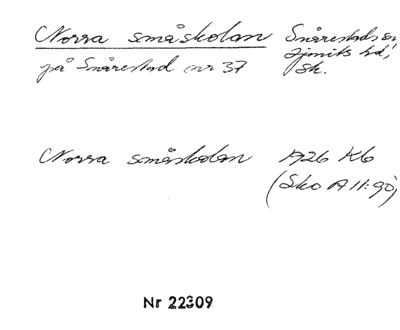 Norra småskolan Snårestads sn
på Snårestad nr 37 Ljunits hd,
Sk.
Norra småskolan 1926 K6
(Sko A 11:90)
Nr 22309